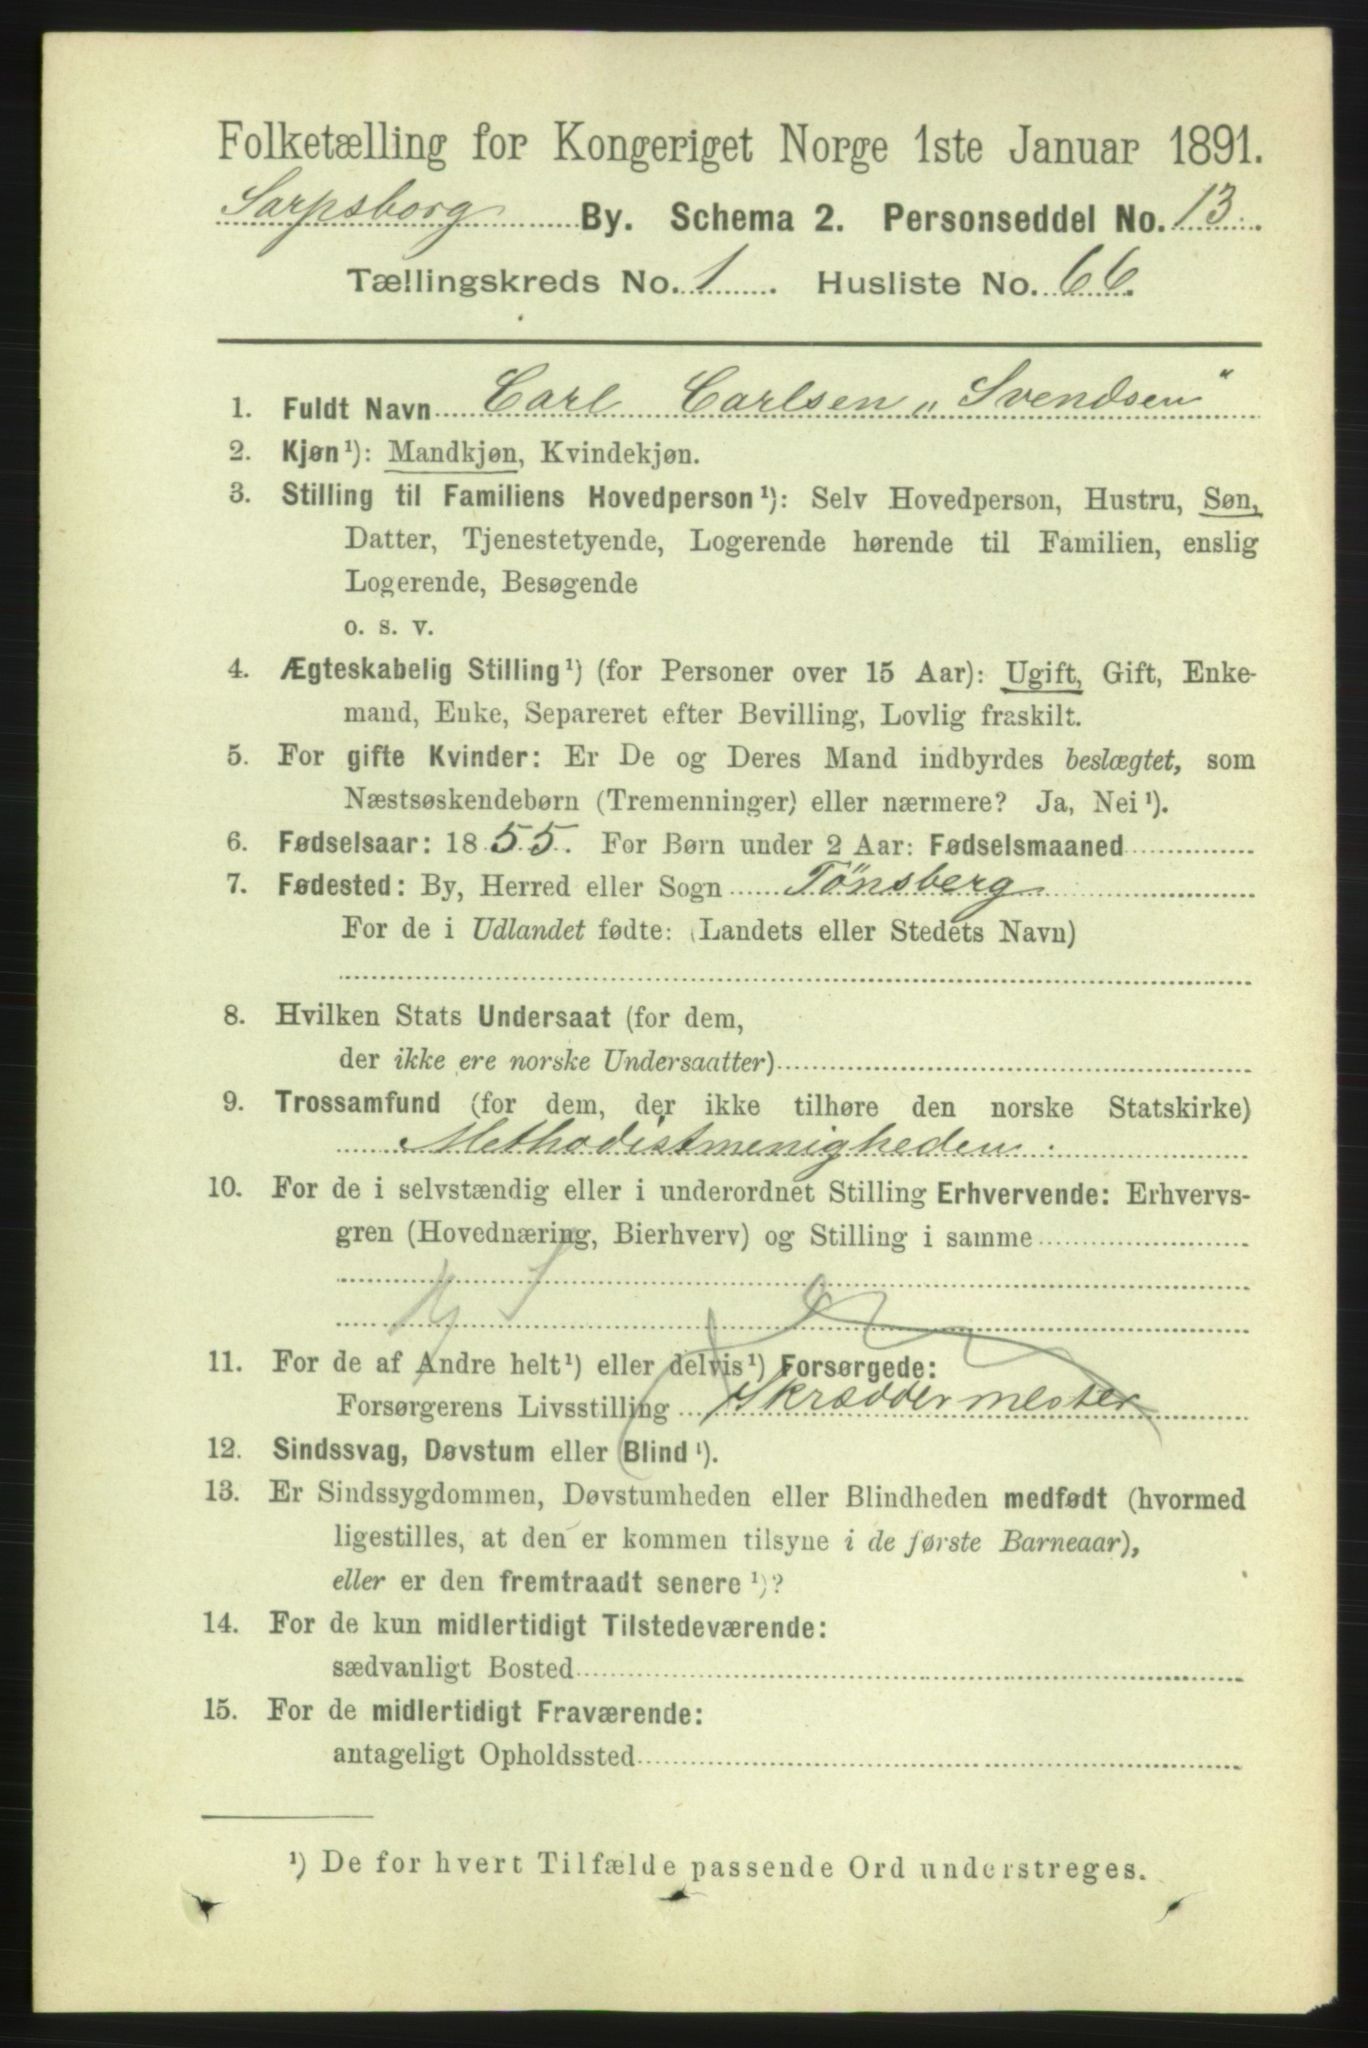 Folketælling for Kongeriget Norge 1ste Januar 1891.
Sarpsborg By. Schema 2. Personseddel No. 13.
Tællingskreds No. 1. Husliste No. 66.
1. Fuldt Navn Carl Carlsen „Svendsen"
2. Kjøn¹): Mandkjøn, Kvindekjøn.
3. Stilling til Familiens Hovedperson¹): Selv Hovedperson, Hustru, Søn,
Datter, Tjenestetyende, Logerende hørende til Familien, enslig
Logerende, Besøgende
o. s. v.
4. Ægteskabelig Stilling¹) (for Personer over 15 Aar): Ugift, Gift, Enke-
mand, Enke, Separeret efter Bevilling, Lovlig fraskilt.
5. For gifte Kvinder: Er De og Deres Mand indbyrdes beslægtet, som
Næstsøskendebørn (Tremenninger) eller nærmere? Ja, Nei¹).
6. Fødselsaar: 1855. For Børn under 2 Aar: Fødselsmaaned
7. Fødested: By, Herred eller Sogn Tönsberg
For de i Udlandet fødte: (Landets eller Stedets Navn)
8. Hvilken Stats Undersaat (for dem,
der ikke ere norske Undersaatter)
9. Trossamfund (for dem, der ikke tilhøre den norske Statskirke)
Methodistmenigheden.
10. For de i selvstændig eller i underordnet Stilling Erhvervende: Erhvervs-
gren (Hovednæring, Bierhverv) og Stilling i samme
11. For de af Andre helt¹) eller delvis¹) Forsørgede:
Forsørgerens Livsstilling Skræddermester
12. Sindssvag, Døvstum eller Blind¹).
13. Er Sindssygdommen, Døvstumheden eller Blindheden medfødt (hvormed
ligestilles, at den er kommen tilsyne i de første Barneaar),
eller er den fremtraadt senere¹)?
14. For de kun midlertidigt Tilstedeværende:
sædvanligt Bosted
15. For de midlertidigt Fraværende:
antageligt Opholdssted
¹) De for hvert Tilfælde passende Ord understreges.